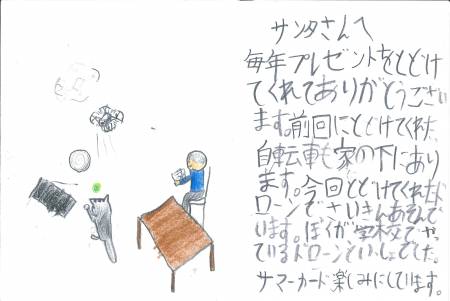 サンタさんへ
毎年プレゼントをとどけ
てくれてありがとうござい
ます。前回にとどけてくれた
自転車も家の下にあり
ます。今回とどけてくれたド
ローンでさいきんあそんで
います。ぼくが学校でやっ
ているドローンといっしょでした。
サマーカード楽しみにしています。